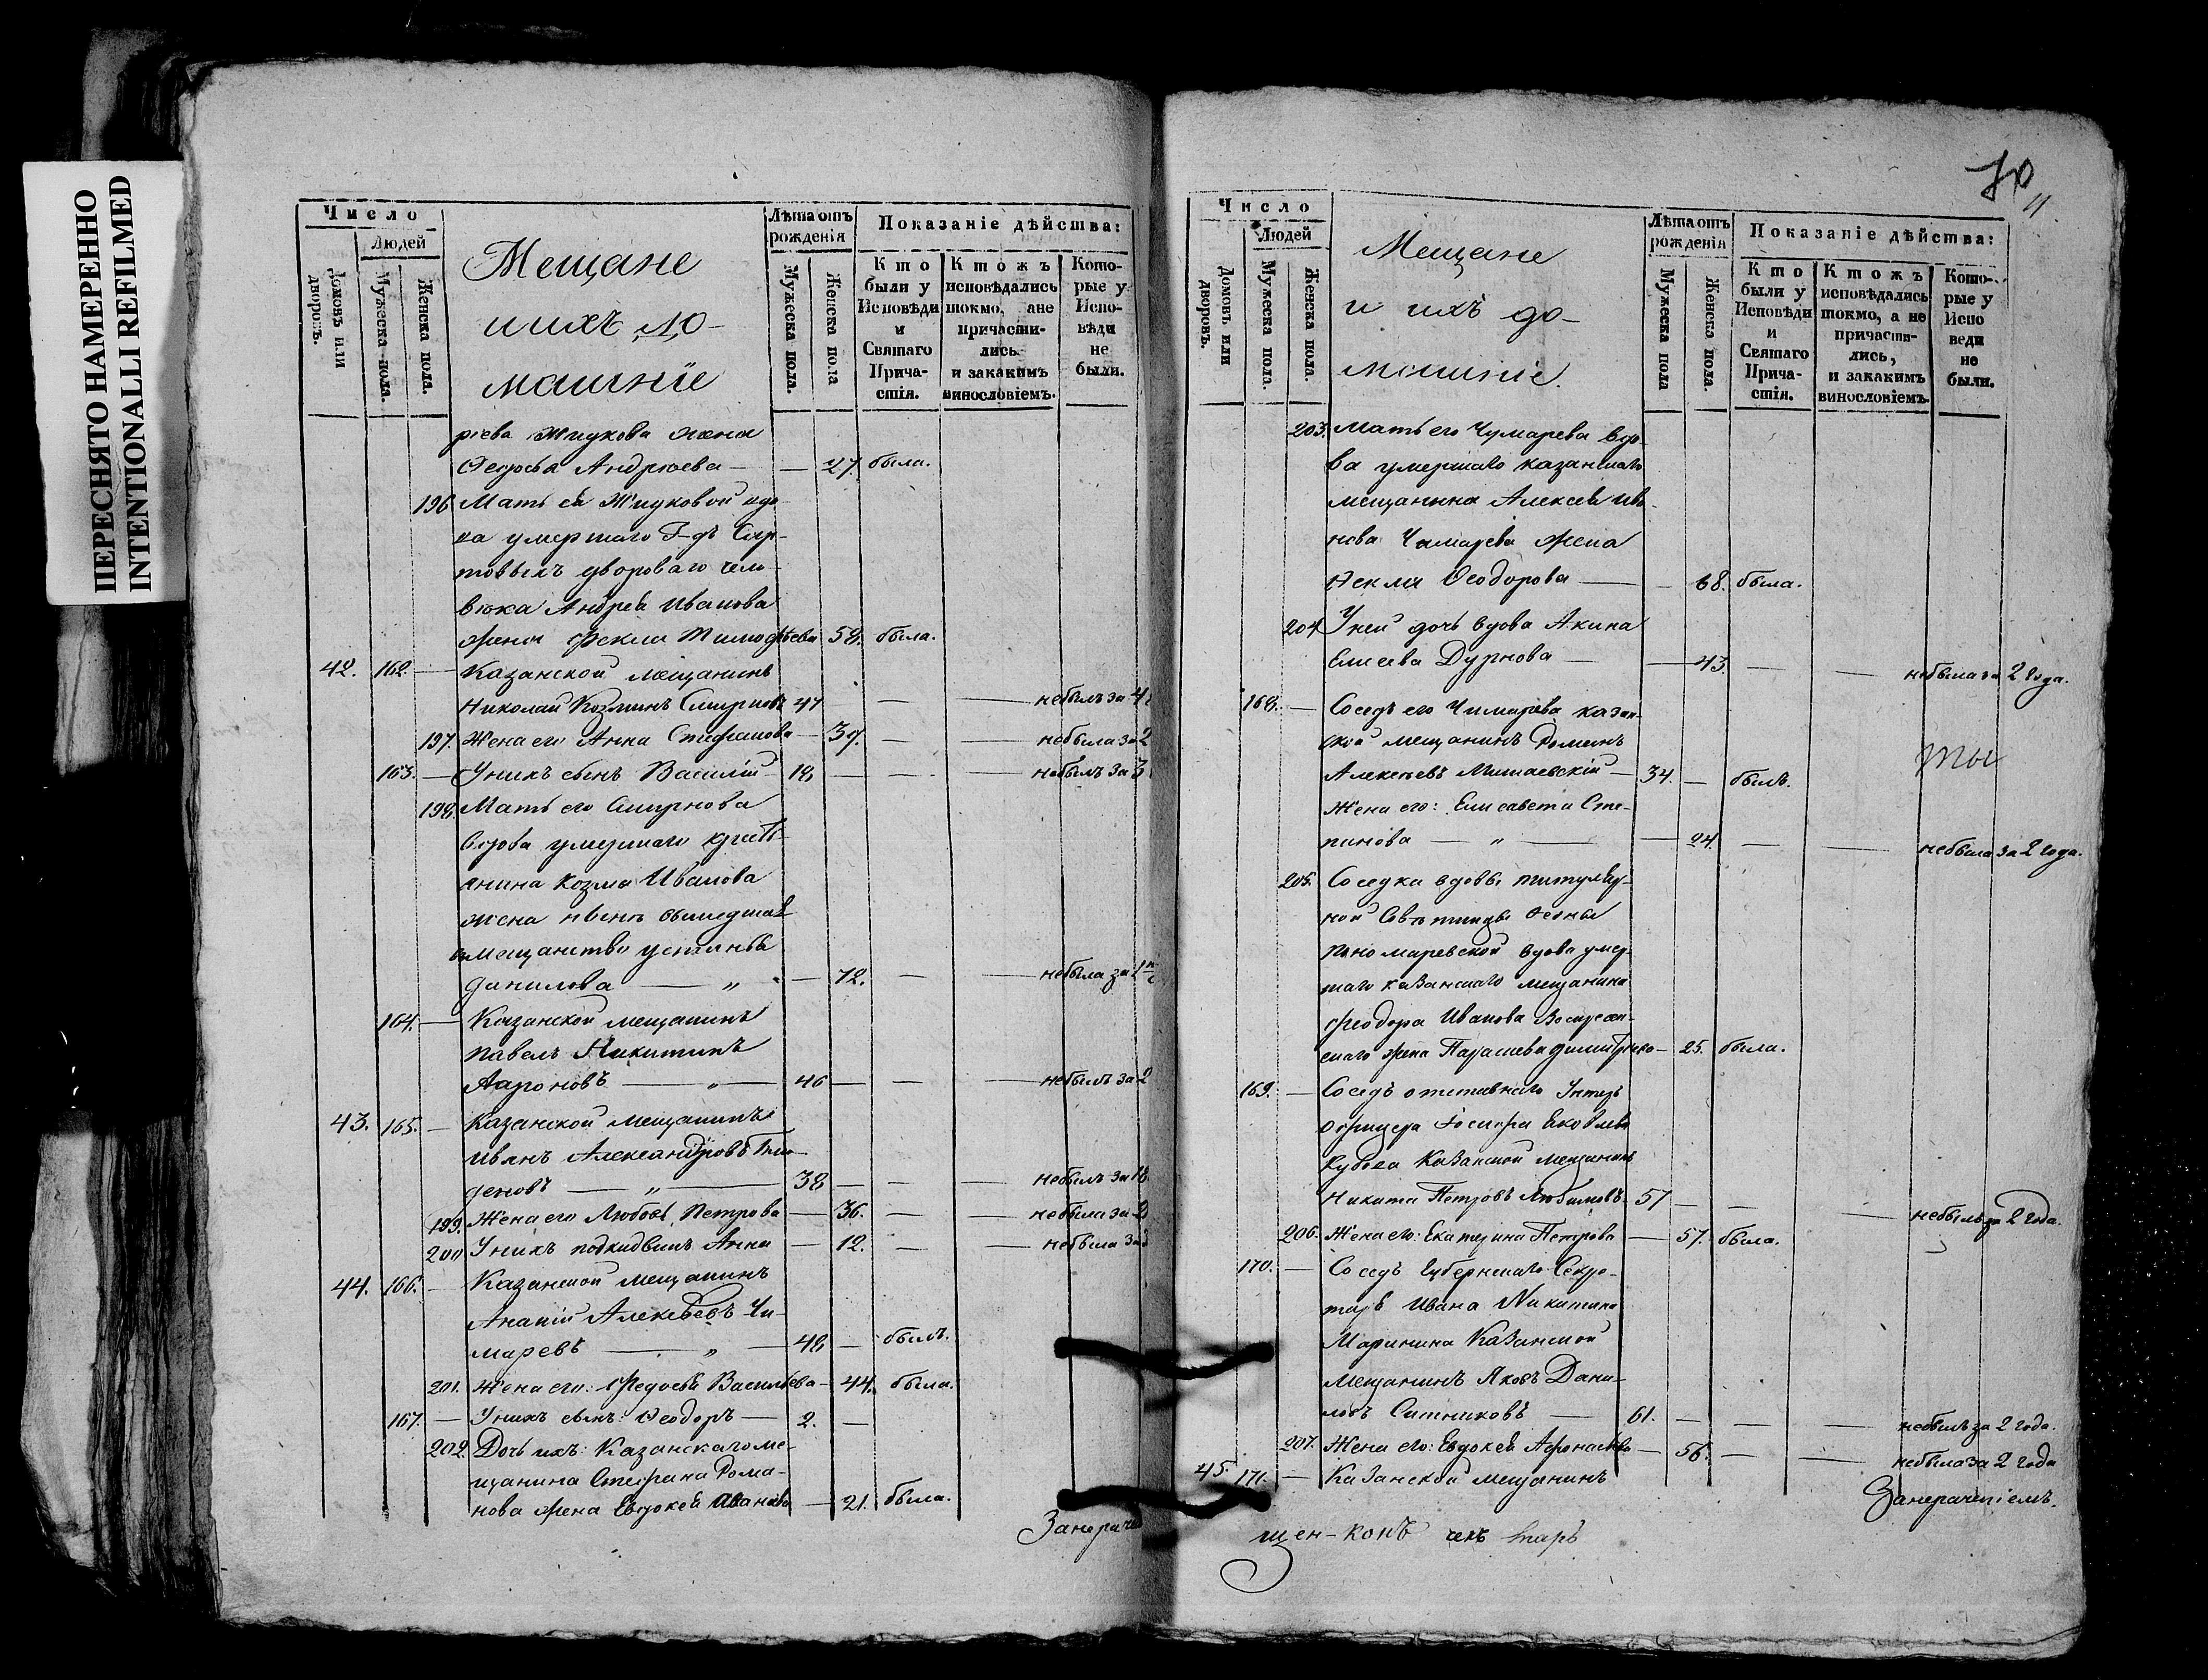 ПЕРЕСНЯТО НАМЕРЕННО
INTENTIONALLI REFILMED
Число
Людей
Домовъ или дворовъ.
Мужеска пола.
Женска пола.
Мещане
и ихъ до-
машніе
Лѣта отъ
рожденія
Мужеска пола.
Женска пола
Показаніе дѣйства:
Кто
были у
Исповѣди
и
Святаго
Прича-
стія.
Ктожъ
исповѣдались
токмо, ане
причасти-
лись
и закакимъ
винословіемъ.
Кото-
рые у
Испо-
вѣди
не
были.
рiева Жидкова жена
Ѳедосья Андреева — — 27. была.
196 Мать ея Жидковой вдо-
ва умершаго Г-дъ
товыхъ двороваго чело-
вѣка Андрея Иванова
жена Фекла Тимофѣева 58. была.
42. 162. — Казанской мещанинъ
Николай Козминъ Смирновъ 47 — — небылъ за 4
197. Жена его Анна Стефанова — 39. — — небыла за 2
163. — У нихъ сынъ Василій 18 — — — небылъ за 3
198. Мать его Смирнова
вдова умершаго кресть-
янина Козма Иванова
жена вышедшая
в мещанство Устинья
Данилова — „ — — 72. — — небыла за 2
164. — Казанской мещанинъ
Павелъ Никитинъ
Аароновъ — „ — 46 — — — небылъ за 2
43. 165. — Казанской мещанинъ
Иванъ Александровъ
деновъ — „ — 38 — — — небылъ за 18
199. Жена его Любовь Петрова — 36. — — небыла за 2
200 У нихъ подкидышъ Анна — 12. — — небыла за
44. 166. — Казанской мещанинъ
Ананій Алексѣевъ Чи-
маревъ — „ — 48 — былъ.
201. Жена его: Федосья Васильева — 44. была.
167. — У нихъ сынъ: Ѳеодоръ — 2. —
202. Дочь ихъ: Казанскаго ме-
щанина Стефана Рома-
нова жена Евдокея Иванова — 21. была.
70
Число
Людей
Домовъ или дворовъ.
Мужеска пола.
Женска пола.
Мещане
и ихъ до-
машніе.
Лѣта отъ
рожденія
Мужеска пола
Женска пола.
Показаніе дѣйства:
Кто
были у
Исповѣди
и
Святаго
Прича-
стія.
Ктожъ
исповѣдались
токмо, а не
причасти-
лись,
и закакимъ
винословіемъ.
Кото-
рые у
Испо
веди
не
были.
203. Мать его Чумарева вдо-
ва умершаго казанскаго
мещанина Алексея Ива-
нова Чимарева жена
Ѳекла Ѳеодорова — — 68. была.
204 У ней дочь вдова Акина
Елисеева Дурнова — — 43. — — небыла за 2 года.
168. — Соседъ его Чимарева казан-
ской мещанинъ Романъ
Алексеевъ — 34. — былъ.
Жена его: Елисавета Сте-
панова — „ — — 24. — — небыла за 2 года.
205. Соседка вдовы титуляр-
ной Советницы
Пономаревской вдова умер-
шаго казанскаго мещанина
Феодора Иванова
жена 25. была.
169. — Соседъ отставнаго Унтеръ
офицера Іосифа Яковлева
Казанской мещанинъ
Никита Петровъ Любимовъ 57 — — — небылъ за 2 года.
206. Жена его: Екатерина Петрова — 57. была.
170. — Соседъ Губернскаго Секре-
таря Ивана Никитина
Маринина Казанской
Мещанинъ Яковъ Дани-
ловъ Ситниковъ — 61. — — — небылъ за 2 года.
207. Жена его: Евдокея Афонасьева — 56. — — небыла за 2 года
45. 171. — Казанской мещанинъ